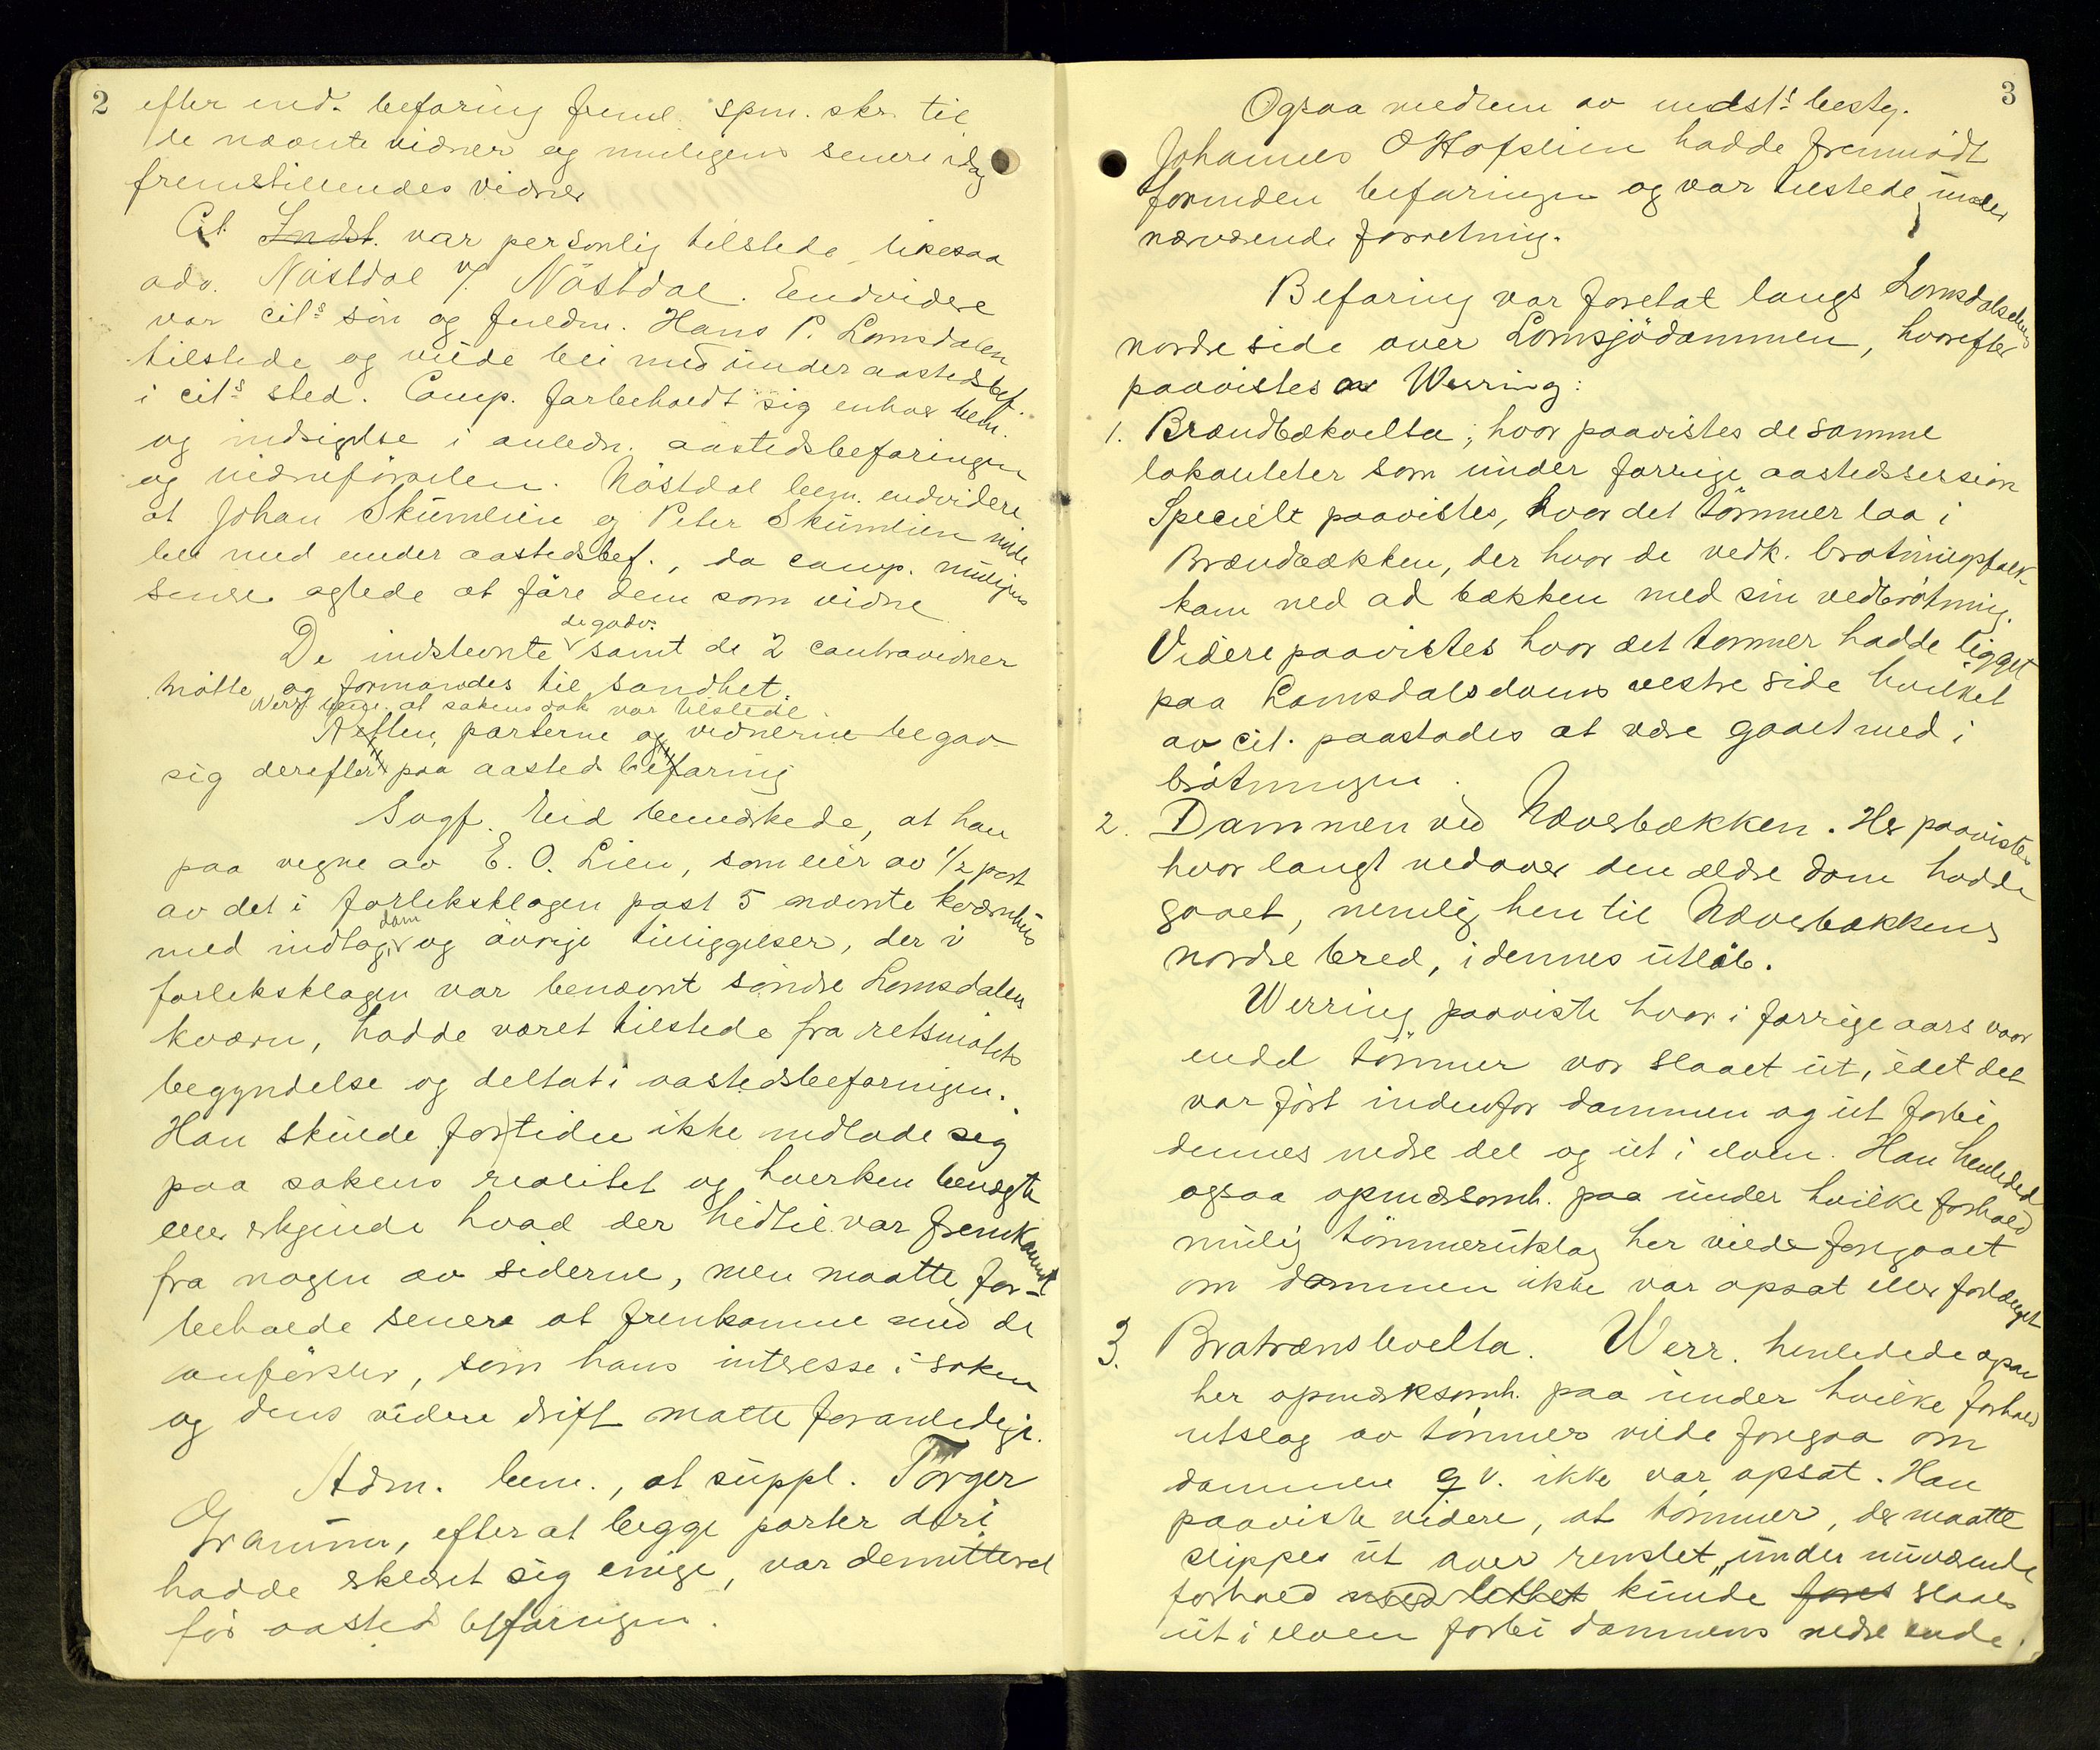 2
efter end. befaring freml. spm. skr. til
de nævnte vidner og muligens senere idag
fremstillendes vidner
Cit. Indst. var personlig tilstede, likesaa
adv. Nöstdal v/ Nöstdal. Endvidere
var cit.s sön og fuldm. Hans P. Lomsdalen
tilstede og vilde bli med under aastedsbef.
i cit.s sted. Comp. forbeholdt sig enhver bem.
og indsigelse i anledn. aastedsbefaringen
og vidneförselen. Nöstdal bem. endvidere
at Johan Skumlien og Peter Skumlien vilde
bli med under aastedsbef., da comp. muligens
senere agtede at före dem som vidne
degodv.
De indstevnte samt de 2 contravidner
mötte og formanedes til sandhet.
Werr. bem. at sakens dok var tilstede
Retten, parterne og vidnerne begav
sig derefter paa aasted befaring
Sagf. Eid bemerkede, at han
paa vegne av E. O. Lien, som eier av 1/2 part
av det i forliksklagen post 5 nævnte kværnhus
dam
med indtag og övrige tilliggelser, der i
forliksklagen var benævnt söndre Lomsdalen
kværn, hadde været tilstede fra retsmötets
begyndelse og deltat i aastedsbefaringen.
Han skulde for tiden ikke indlade seg
paa sakens realitet og hverken benegte
eller erkjende hvad der hidtil var fremkommet
fra nogen av siderne, men maatte for-
beholde senere at fremkomme med de
anförsler, som hans interesse i saken
og dens videre drift matte foranledige.
Adm. bem., at suppl. Torger
Gramum, efter at begge parter deri
hadde erklæret sig enige, var demitteret
för aasted befaringen.
3
Ogsaa medlem av indst.s besty.
Johannes O Hofslien hadde fremmödt
forinden befaringen og var tilstede under
nærværende forretning.
Befaring var foretat langs Lomsdalselvens
nordre side over Lomsjödammen, hvorefter
paavistes av Werring:
1. Brændbækvelta; hvor paavistes de samme
lokaliteter som under forrige aastedssession
Specielt paavistes, hvor det tömmer laa i
Brændbækken, der hvor de vedk. brötningsfolk
kom ned ad bækken med sin vedbrötning.
Videre paavistes hvor det tømmer hadde ligget
paa Lomsdalsdams vestre side hvilket
av cit. paastodes at være gaaet med i
brötningen.
2. Dammen ved Næverbækken. Her paavistes
hvor langt nedover den ældre dam hadde
gaaet, nemlig hen til Næverbækkens
nordre bred, i dennes utlöb.
Werring paaviste hvor i forrige aars vaar
endel tömmer var slaaet ut, idet det
var fört indenfor dammen og ut forbi
dennes nedre del og ut i elven. Han henledede
ogsaa opmersomh. paa under hvilke forhold
mulig tömmerutslag her vilde foregaaet
om dammen ikke var opsat eller forlænget
3. Bratrænslevelta. Werr. henledede ogsaa
her opmerksomh. paa under hvilke forhold
utslag av tömmer vilde foregaa om
dammen g v. ikke var opsat. Han
paaviste videre, at tömmer, der maatte
slippes ut over renslet, under nuværende
forhold med lethet kunde föres slaaes
ut i elven forbi dammens nedre ende.